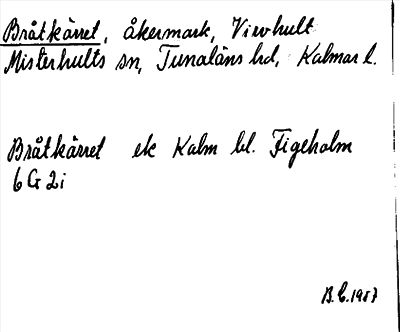 Bråtkärret, åkermark, Virvhult
Misterhults sn, Tunaläns hd, Kalmar l.
Bråtkärret ek Kalm bl. Figeholm
6 G 2 i
B.E. 1987